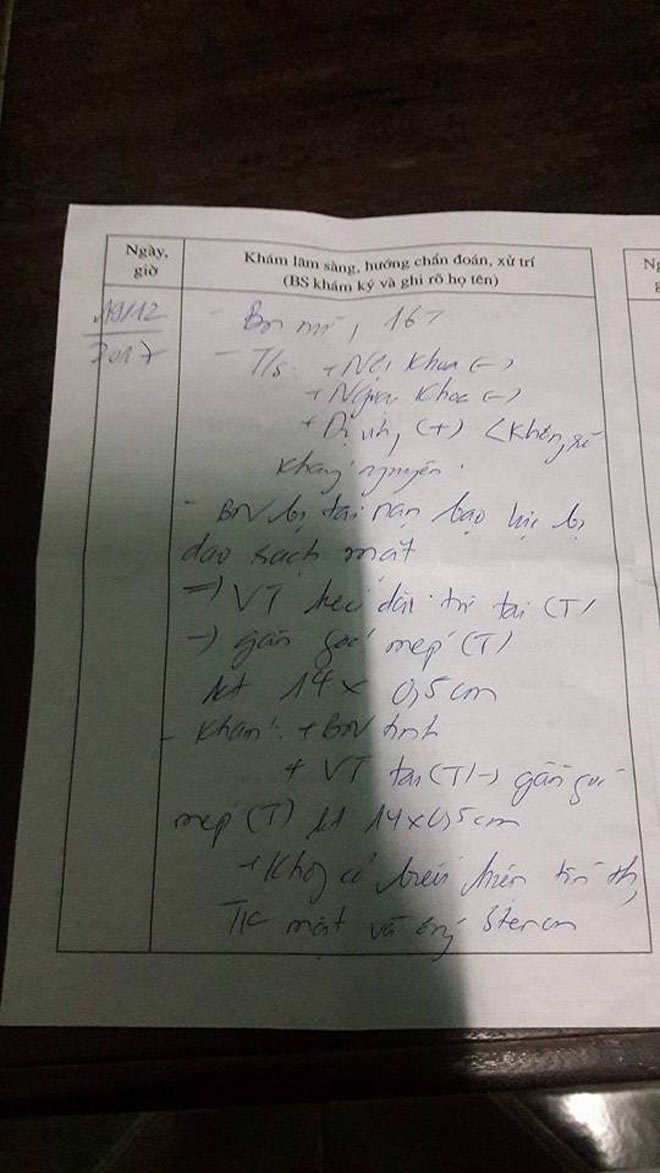 Ngày,
giờ
Khám lâm sàng, hướng chẩn đoán, xử trí
(BS khám ký và ghi rõ họ tên)
19/12
2017
- BN nữ, 16T
- T/s: + Nội khoa (-)
+ Ngoại khoa (-)
+ Dị ứng (+) (không rõ
kháng nguyên
- BN bị tai nạn bạo lực bị
dao rạch mặt
=> VT kéo dài từ tai (T)
-> gần góc mép (T)
kt 14 x 0,5cm
- Khám: + BN tỉnh
+ VT tai (T) -> gần góc
mép (T) kt 14x0,5cm
+ Không có biểu hiện tổn th
TK mặt và ống Stenon